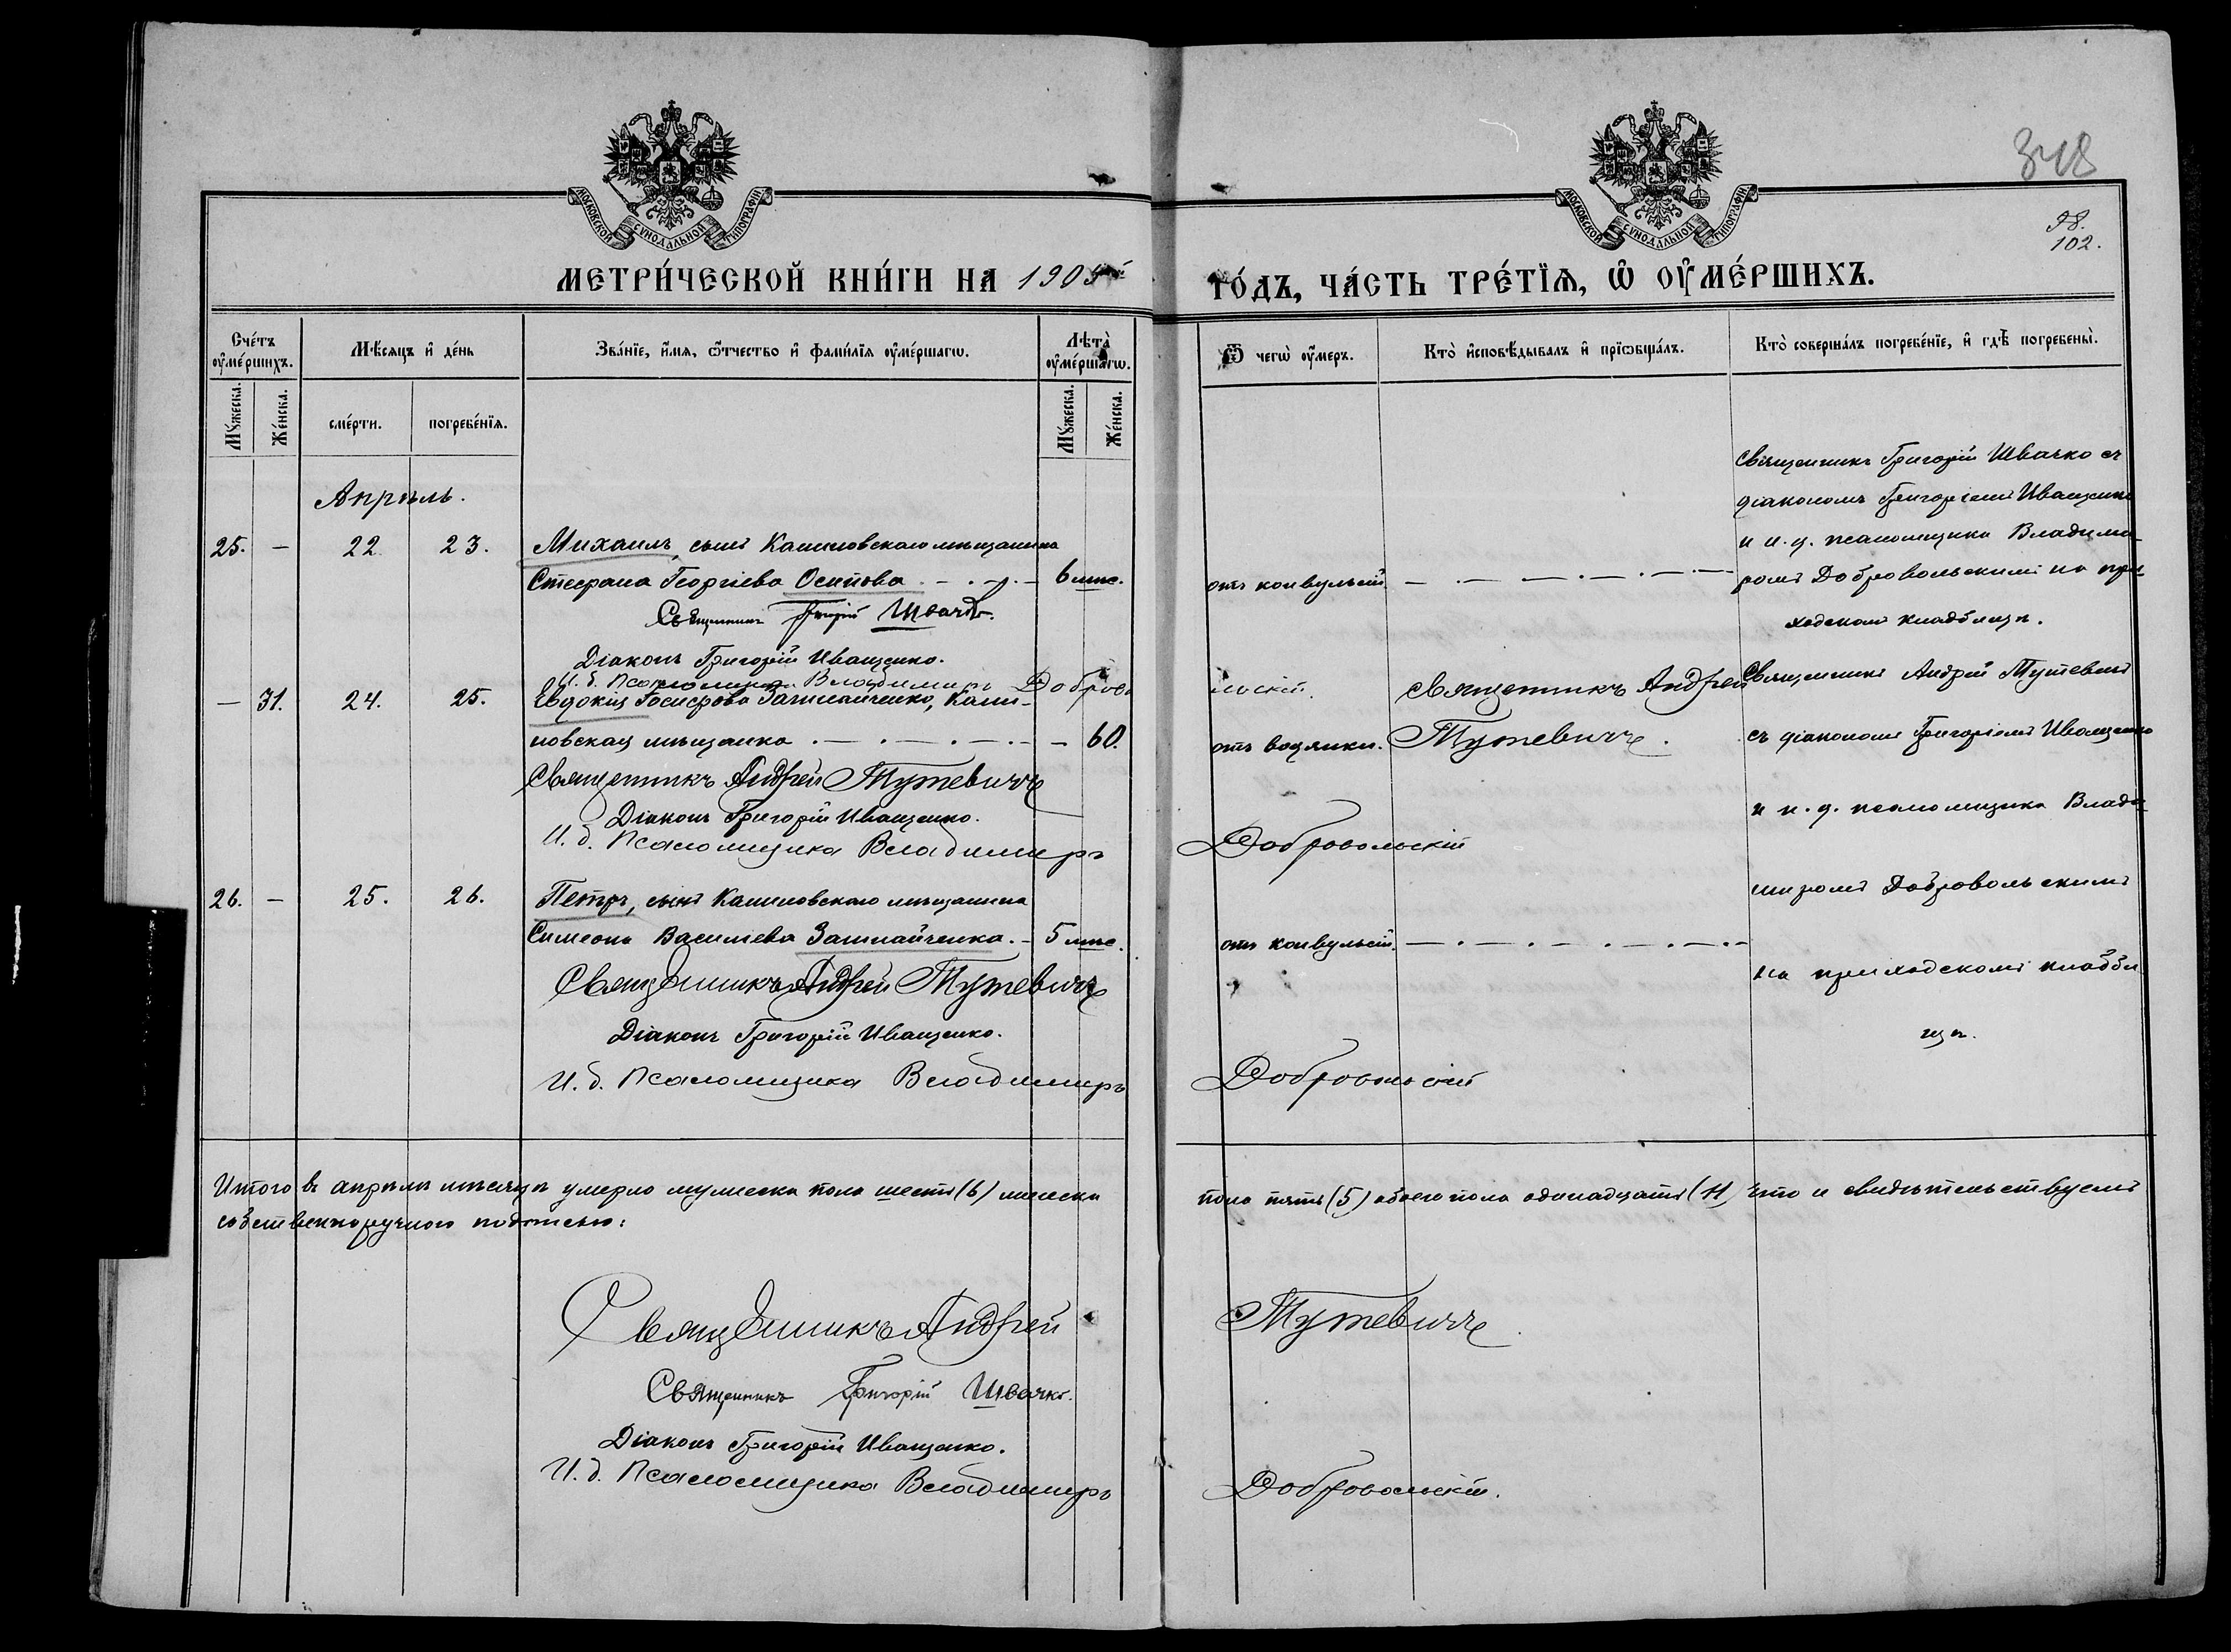 348
98.
102.
МОСКОВСКОЙ СѴНОДАЛЬНОЙ ТИПОГРАФІИ
МОСКОВСКОЙ СѴНОДАЛЬНОЙ ТИПОГРАФІИ
МЕТРИ́ЧЕСКОЙ КНИ́ГИ НА 1905й ГО́ДЪ, ЧА́СТЬ ТРЕ́ТЇѦ, Ѿ ОУ҆МЕ́РШИХЪ.
Сче́тъ оу҆ме́ршихъ.
Мѣ́сяцъ и҆ де́нь
Зва́нїе, и҆́мѧ, ѻ҆́тчество и҆ фами́лїѧ оу҆ме́ршагѡ.
Лѣ̀та оу҆ме́ршагѡ.
Ѿ чегѡ̀ оу҆́меръ.
Кто̀ и҆сповѣ́дывалъ и҆ прїѡбща́лъ.
Кто̀ соверша́лъ погребе́нїе, и҆ гдѣ̀ погребены̀.
Му́жеска.
Же́нска.
сме́рти.
погребе́нїѧ.
Му́жеска.
Же́нска.
Апрѣль.
Священникъ Григорій Швачко съ
діакономъ Григоріемъ Иващенко
25. — 22. 23. Михаилъ, сынъ мѣщанина
и и. д. псаломщика Владими-
Стефана Георгіева Осипова 6 мѣс. отъ конвульсій
ромъ Добровольскимъ на при-
Священникъ Григорій Швачко.
ходскомъ кладбищѣ.
Діаконъ Григорій Иващенко.
И. д. Псаломщика Владимиръ Добровольскій.
— 31. 24. 25. Евдокія Зашпайченко,
Священникъ Андрей
Священникъ Андрей Тутевичъ
новская мѣщанка — 60. отъ водянки. Тутевичъ.
съ діакономъ Григоріемъ Иващенко
Священникъ Андрей Тутевичъ
Діаконъ Григорій Иващенко.
и и. д. псаломщика Влади-
И. д. Псаломщика Владимиръ Добровольскій
26. — 25. 26. Петръ, сынъ мѣщанина
миромъ Добровольскимъ
Симеона Василіева Зашпайченка. 5 мѣс. отъ конвульсій.
Священникъ Андрей Тутевичъ
на приходскомъ кладби-
Діаконъ Григорій Иващенко.
щѣ.
И. д. Псаломщика Владимиръ Добровольскій
Итого въ апрѣлѣ мѣсяцѣ умерло мужеска пола шесть (6) женска пола пять (5) обоего пола одинадцать (11) что и свидѣтельствуемъ
собственноручною подписью:
Священникъ Андрей Тутевичъ
Священникъ Григорій Швачко.
Діаконъ Григорій Иващенко.
И. д. Псаломщика Владимиръ Добровольскій.